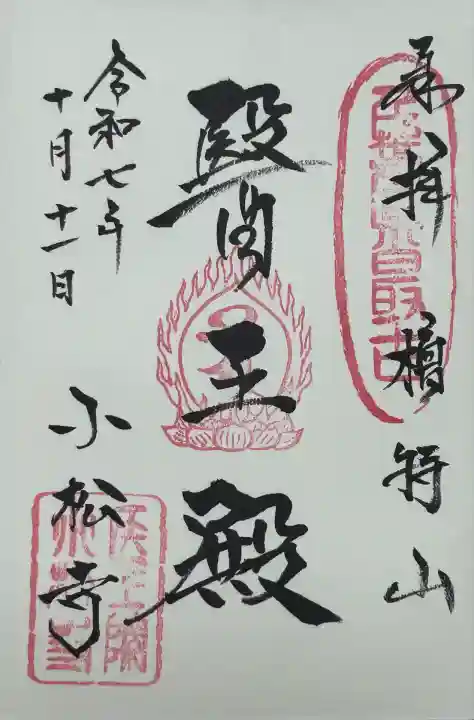 奉拝 檀特山
醫王殿
令和七年
十月十一日
小松寺